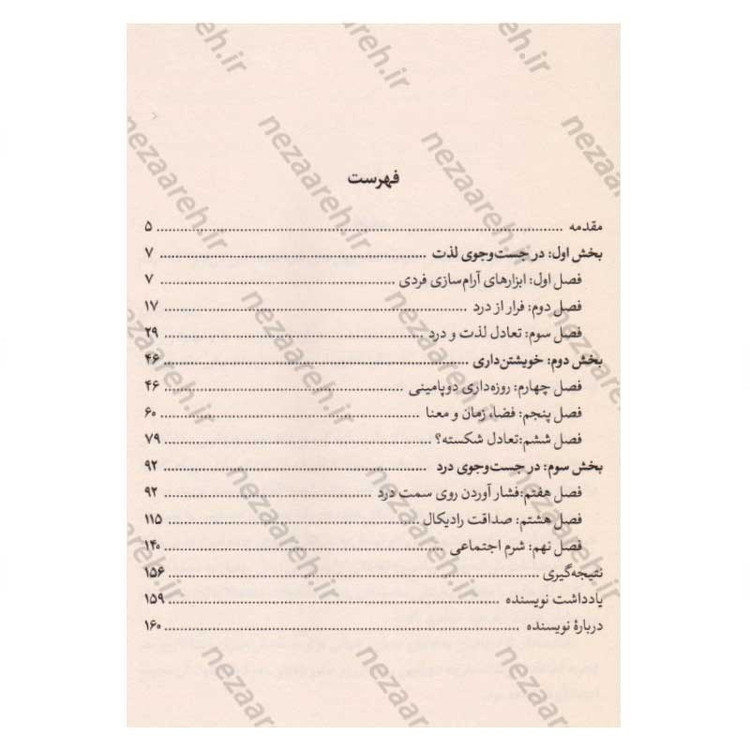 فهرست
مقدمه ........ ۵
بخش اول: در جست‌وجوی لذت ........ ۷
فصل اول: ابزارهای آرام‌سازی فردی ........ ۷
فصل دوم: فرار از درد ........ ۱۷
فصل سوم: تعادل لذت و درد ........ ۲۹
بخش دوم: خویشتن‌داری ........ ۴۶
فصل چهارم: روزه‌داری دوپامینی ........ ۴۶
فصل پنجم: فضا، زمان و معنا ........ ۶۰
فصل ششم:تعادل شکسته؟ ........ ۷۹
بخش سوم: در جست‌وجوی درد ........ ۹۲
فصل هفتم:فشار آوردن روی سمت درد ........ ۹۲
فصل هشتم: صداقت رادیکال ........ ۱۱۵
فصل نهم: شرم اجتماعی ........ ۱۴۰
نتیجه‌گیری ........ ۱۵۶
یادداشت نویسنده ........ ۱۵۹
دربارهٔ نویسنده ........ ۱۶۰
nezaareh.ir